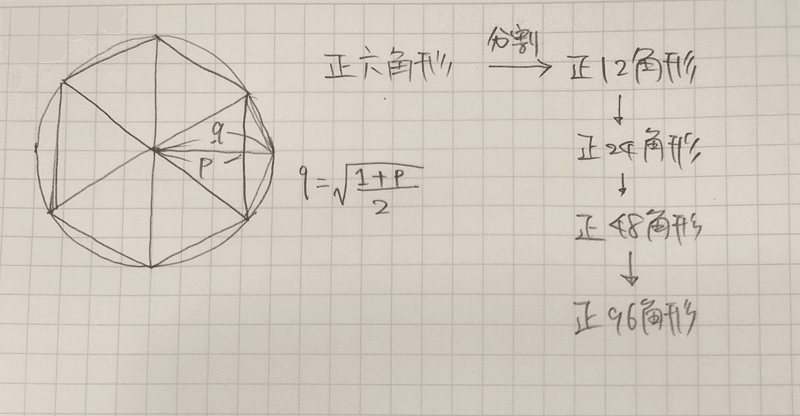 正六角形 分割→ 正12角形
↓
正24角形
↓
正48角形
↓
正96角形
q
p
q=√((1+p)/2)